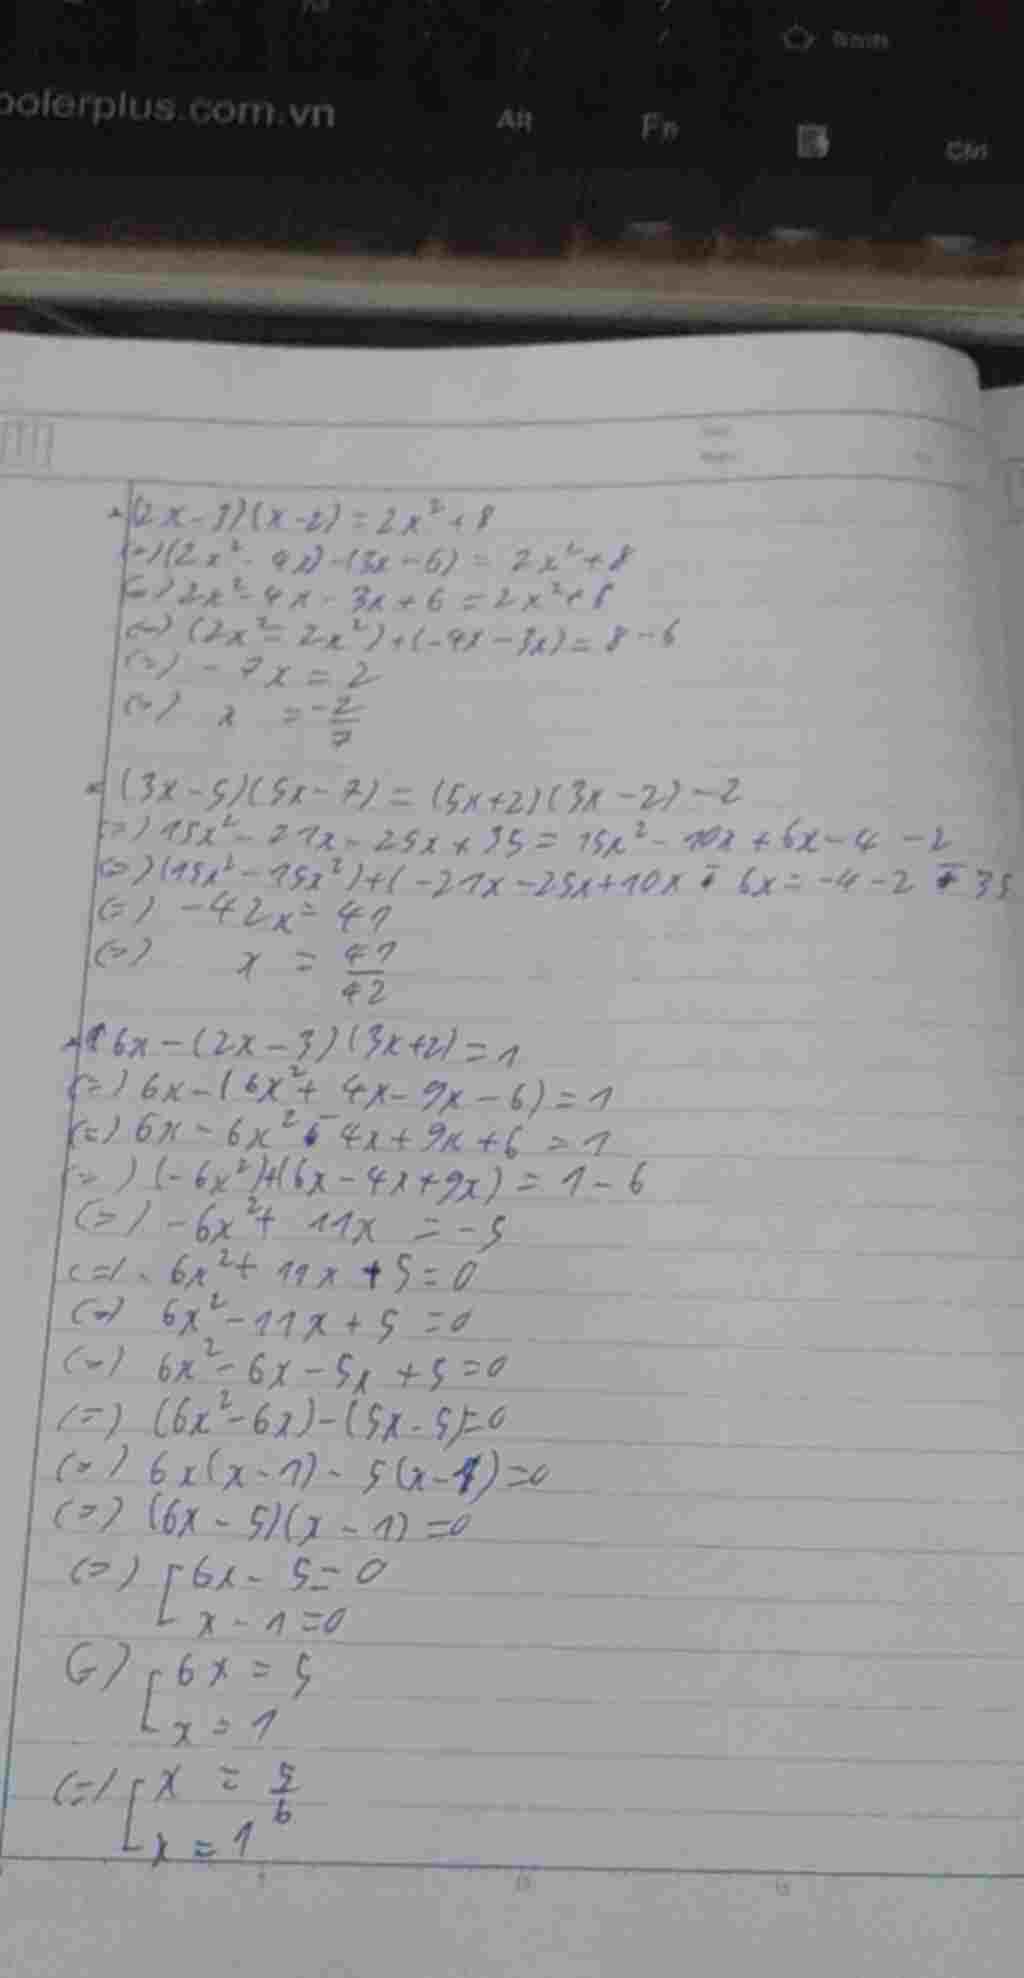 oolerplus.com.vn
Alt
Fn
Ctrl
(2x-3)(x-2) = 2x² + 8
(=) (2x² - 4x) - (3x - 6) = 2x² + 8
(=) 2x² - 4x - 3x + 6 = 2x² + 8
(=) (2x² - 2x²) + (-4x - 3x) = 8 - 6
(=) - 7x = 2
(=) x = -2/7
(3x-5)(5x-7) = (5x+2)(3x-2) - 2
(=) 15x² - 21x - 25x + 35 = 15x² - 10x + 6x - 4 - 2
(=) (15x² - 15x²) + (-21x - 25x + 10x - 6x = -4 - 2 - 35
(=) -42x = 41
(=) x = 41/42
6x - (2x-3)(3x+2) = 1
(=) 6x - (6x² + 4x - 9x - 6) = 1
(=) 6x - 6x² - 4x + 9x + 6 = 1
(=) (-6x²) + (6x - 4x + 9x) = 1 - 6
(=) -6x² + 11x = -5
(=) - 6x² + 11x + 5 = 0
(=) 6x² - 11x + 5 = 0
(=) 6x² - 6x - 5x + 5 = 0
(=) (6x² - 6x) - (5x - 5) = 0
(=) 6x(x-1) - 5(x-1) = 0
(=) (6x - 5)(x - 1) = 0
(=) [6x - 5 = 0
x - 1 = 0
(=) [6x = 5
x = 1
(=) [x = 5/6
x = 1